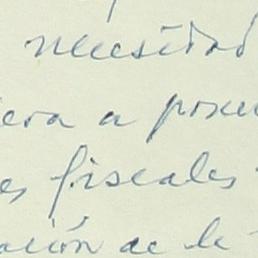 necesidad
era a poner
es fiscales
ación de la